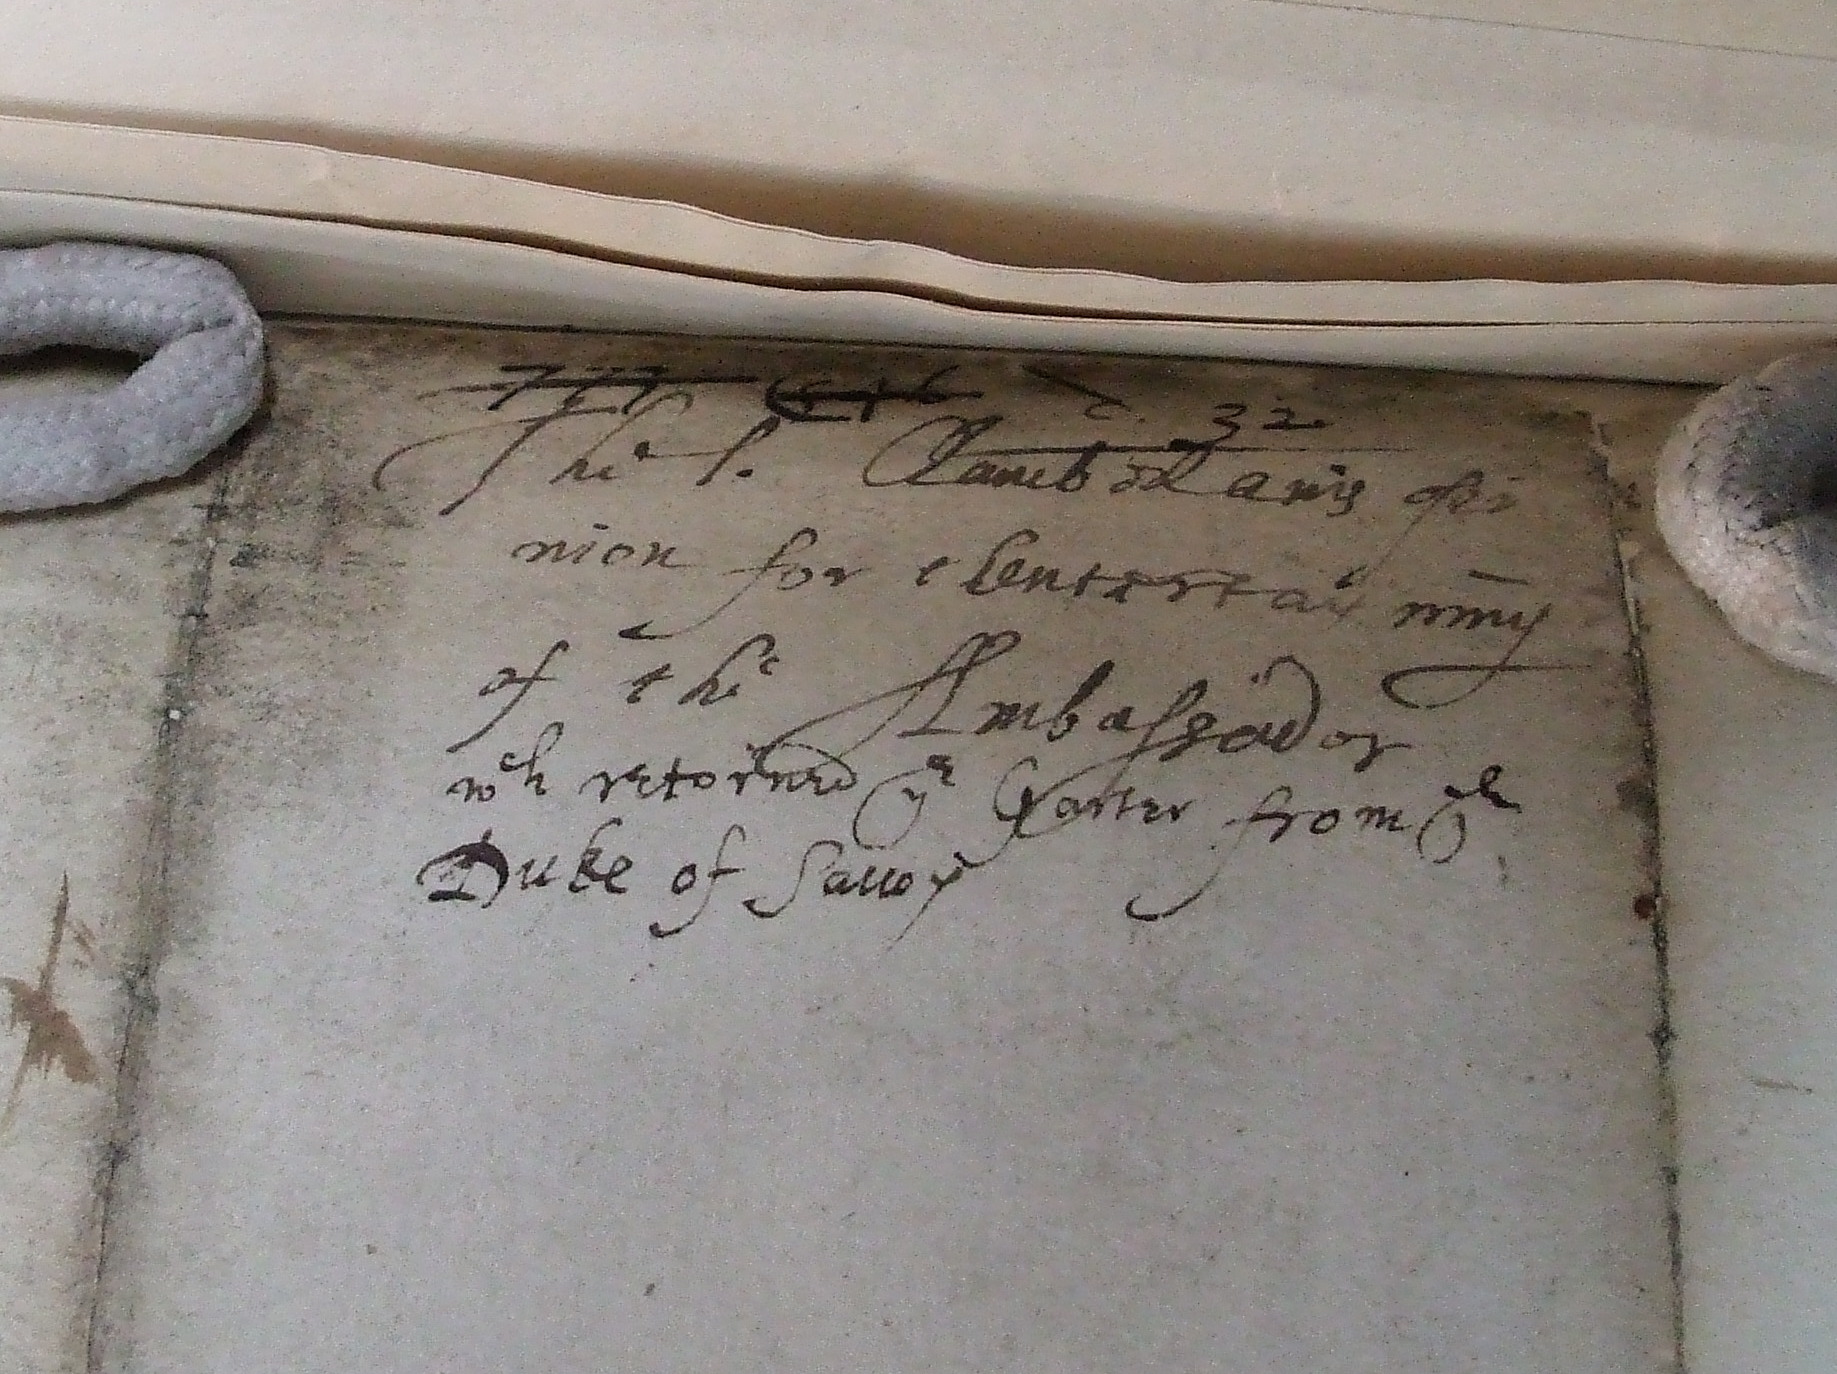 32
The l. Chamberlains opi
nion for thentertaining
of the Ambassador
wch retorned ye Garter from ye
Duke of Sauoy